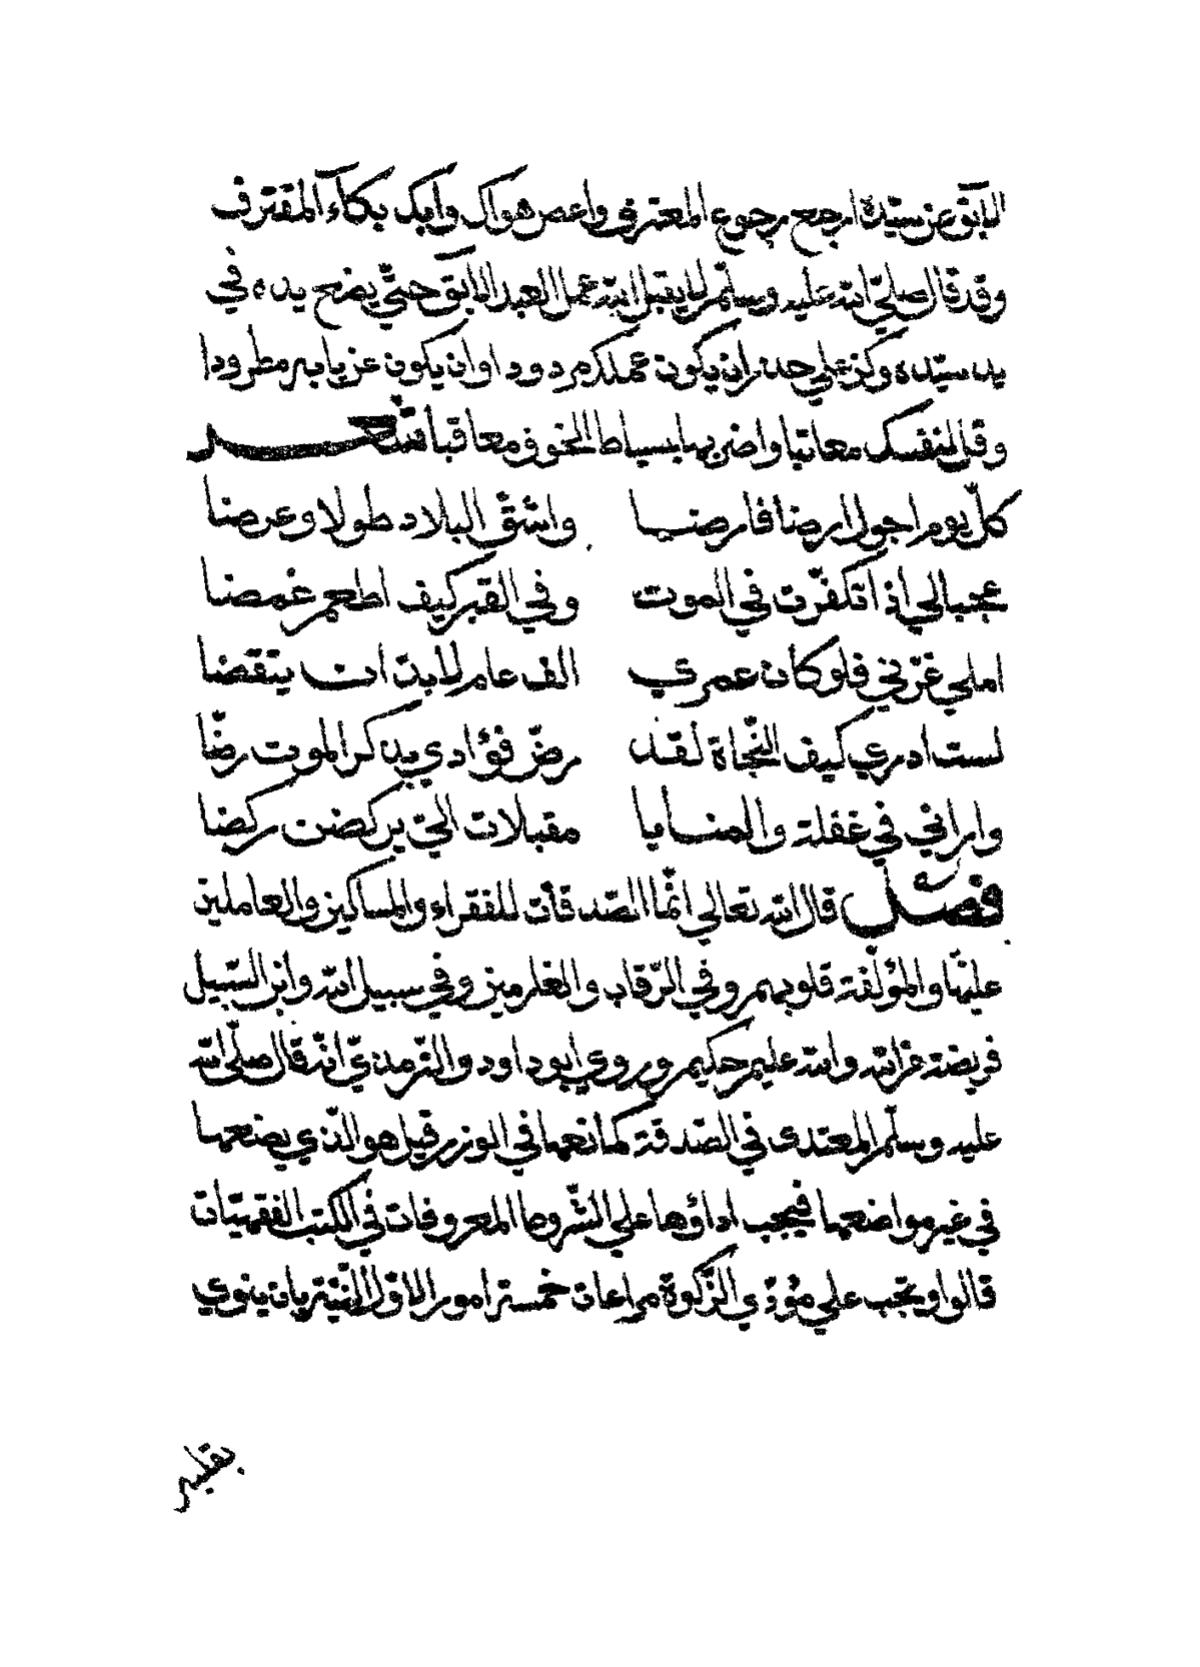 الآبق عن سيّده ارجع رجوع المعترف واعص هواك وابك بكآء المقترف
وقد قال صلّي الله عليه وسلّم لا يقبل الله عمل العبد الآبق حتّي يضع يده في
يد سيّده وكن علي حذر ان يكون عملك مردودا وان يكون عن بابه مطرودا
وقل لنفسك معاتبا واضربها بسياط الخوف معاقبا شعر
كلّ يوم اجول ارضا فارضا واشقّ البلاد طولا وعرضا
عجبا لي اذا تكفّرت في الموت وفي القبر كيف اطعم غمضا
املي غرّني فلو كان عمري الف عام لا بدّ ان يتقضا
لست ادري كيف النّجاة لقد رضّ فؤادي بذكر الموت رضّا
واراني في غفلة والمنايا مقبلات اليّ يركضن ركضا
فصل قال الله تعالي انّما الصّدقات للفقراء والمساكين والعاملين
عليها والمؤلّفة قلوبهم وفي الرّقاب والغارمين وفي سبيل الله وابن السّبيل
فريضة من الله والله عليم حكيم وروي ابو داود والتّرمذيّ انّه قال صلّي الله
عليه وسلّم المعتدى في الصّدقة كمانعها في الوزر قيل هو الّذي يضعها
في غير مواضعها فيجب اداؤها علي الشّروط المعروفات في الكتب الفقهيّات
قالوا ويجب علي مؤدّي الزّكوة مراعات خمسة امور الاوّل النّيّة بان ينوي
بقلبه